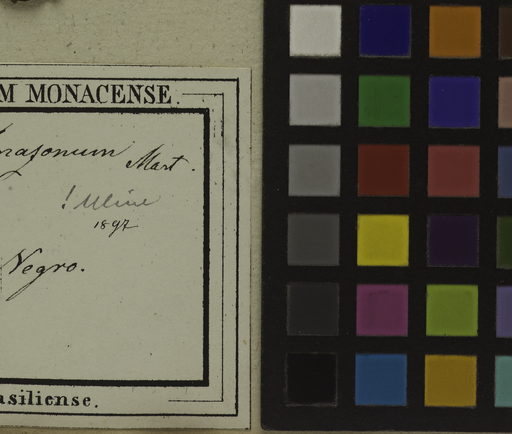 M MONACENSE.
mazonum Mart.
! Uline
1897
Negro.
asiliense.